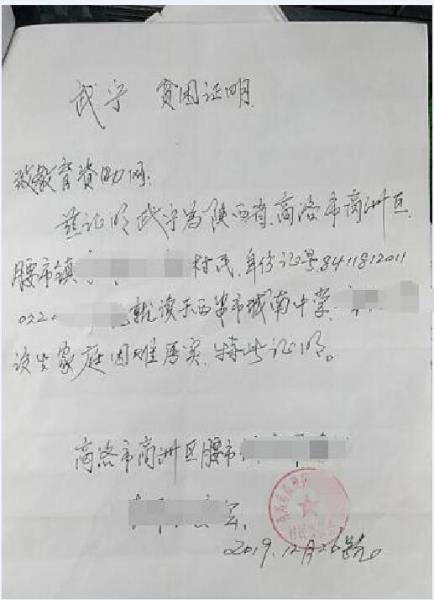 武宁 贫困证明
致教育资助网:
兹证明武宁为陕西省商洛市商洲区
腰市镇 村民,身份证号8411812011
022 就读于西安市城南中学,
该生家庭困难属实,特此证明。
商洛市商洲区腰市
2019.12月26